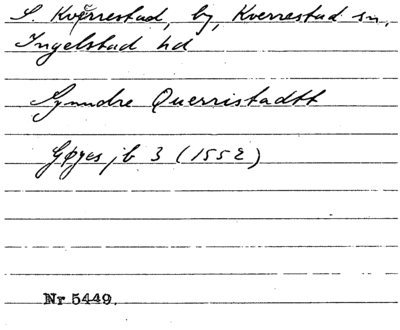 S. Kvärrestad, by, Kverrestad sn,
Ingelstad hd
Synndre Querristadtt
Gøyes jb 3 (1552)
Nr 5449.